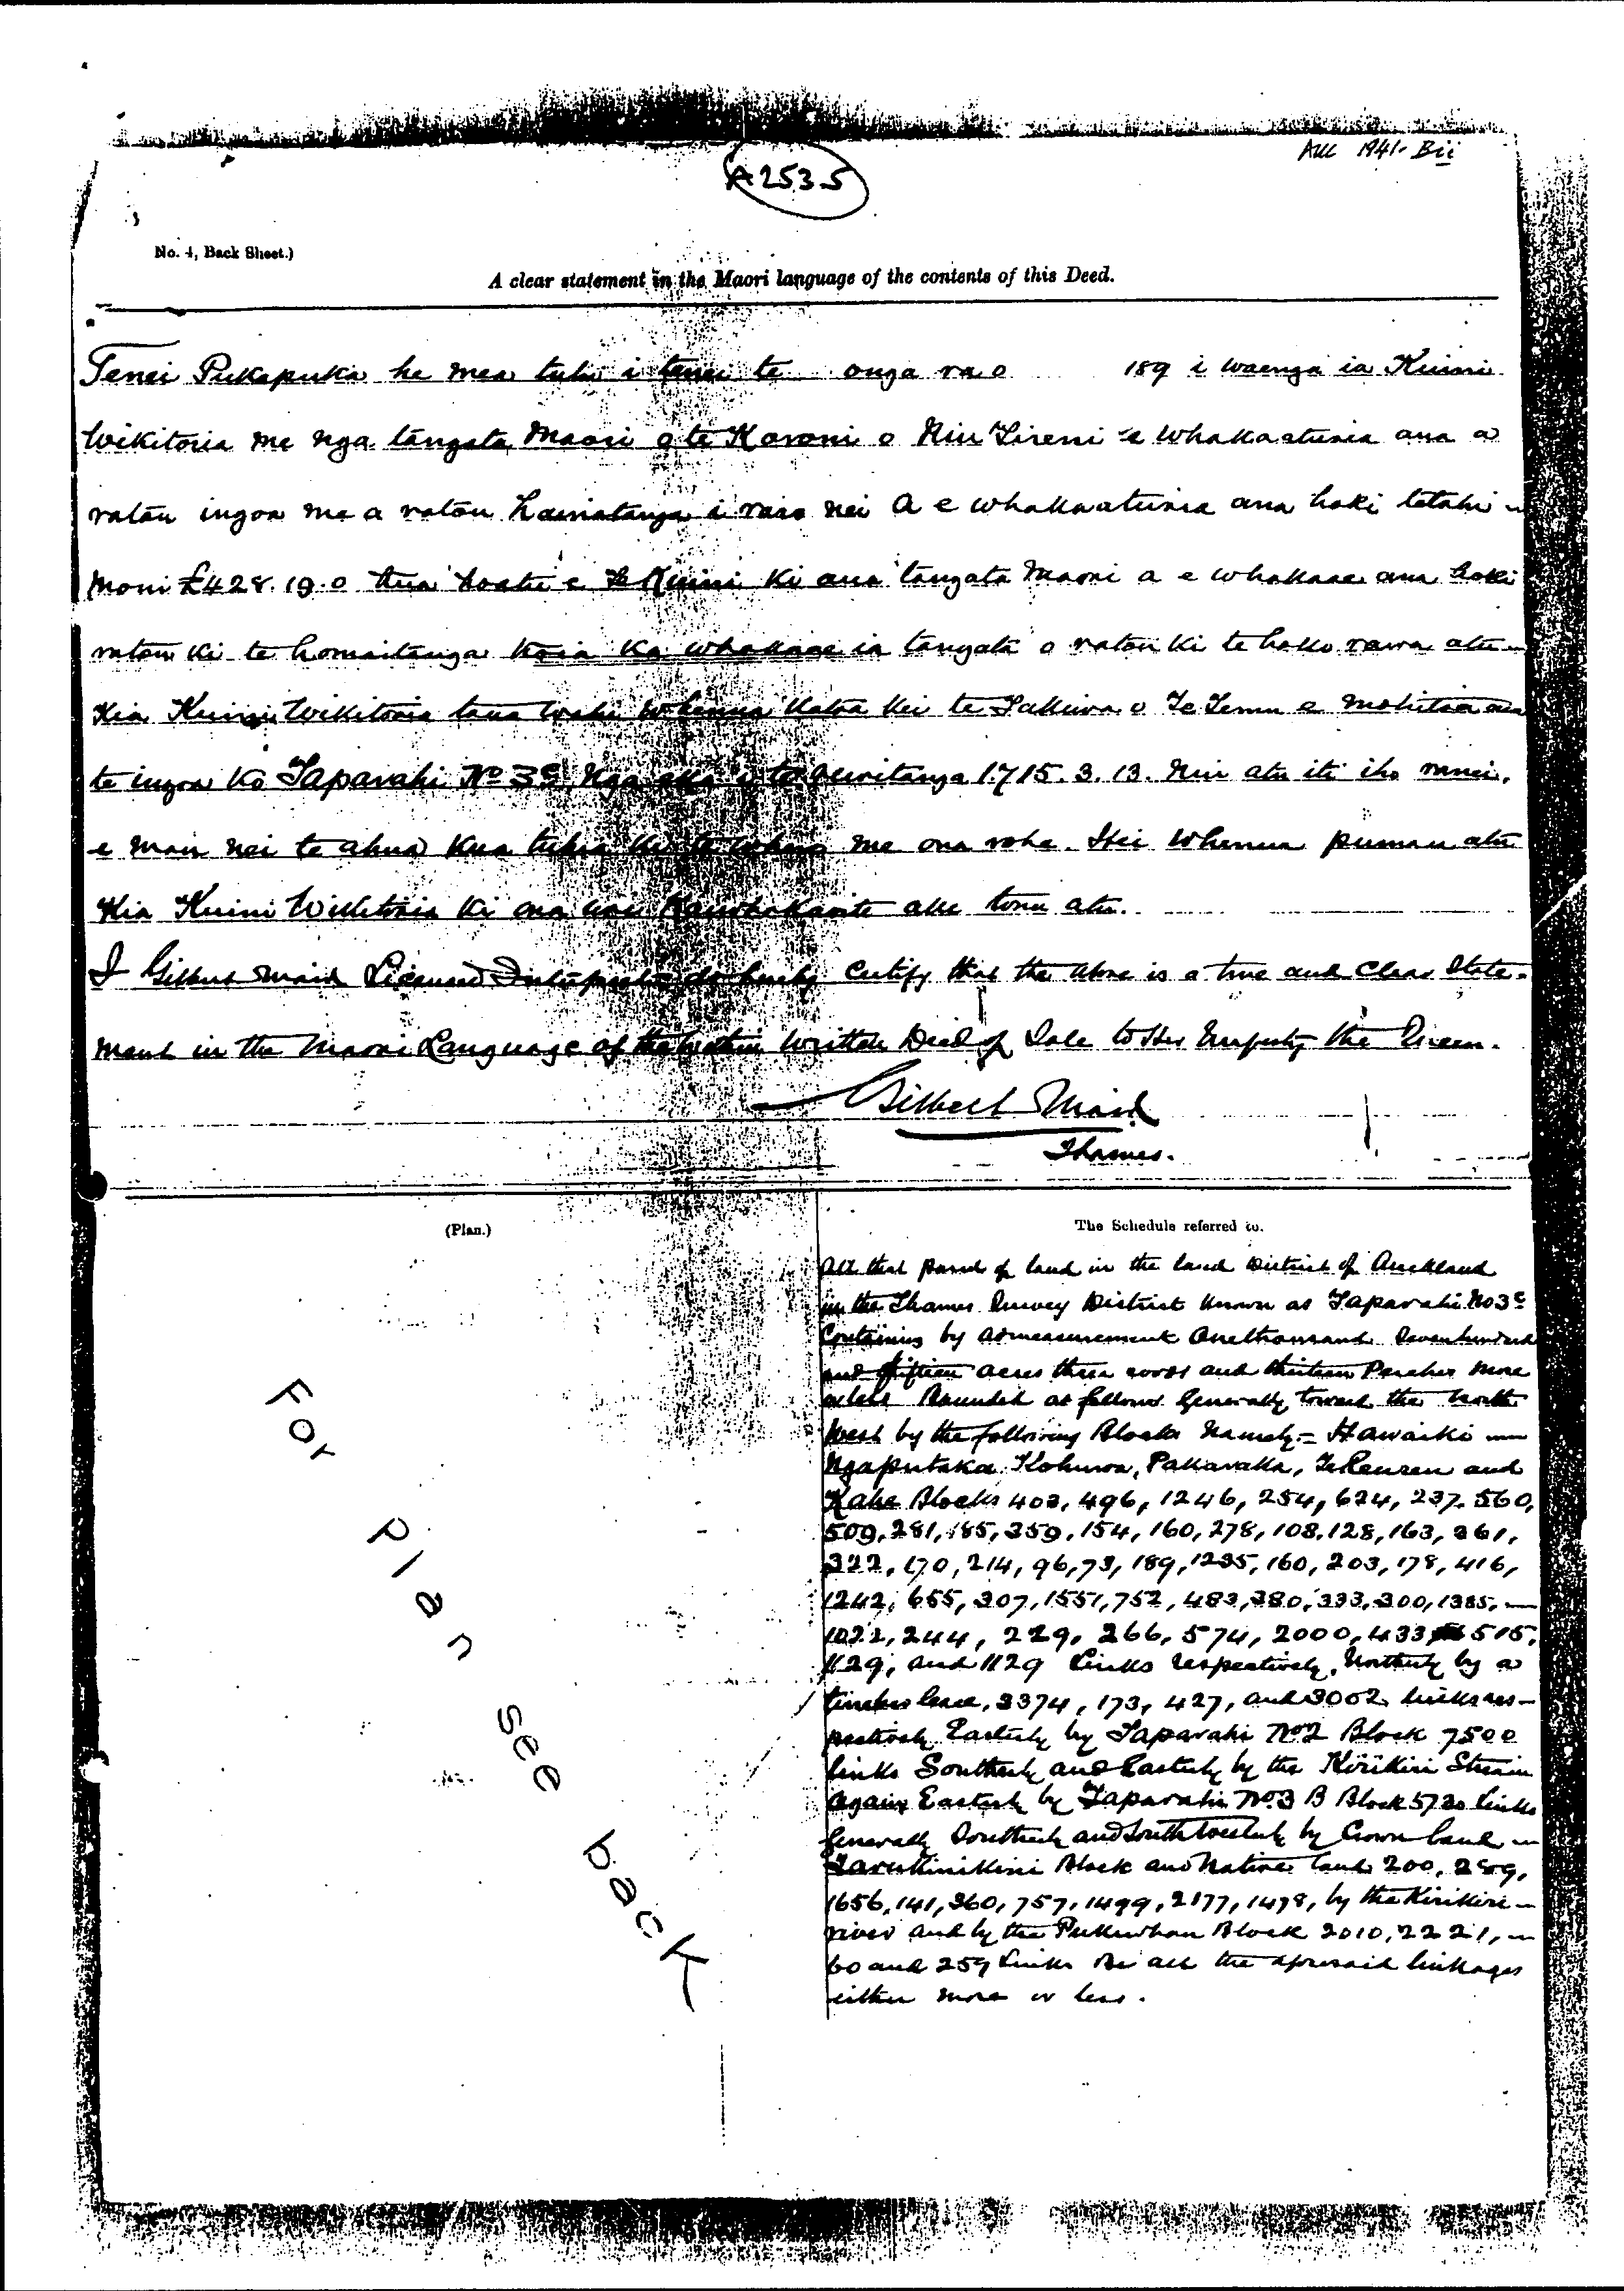 Auc 1941. Bii
A 2535
No. 4, Back Sheet.)
A clear statement in the Maori language of the contents of this Deed.
Tenei Pukapuka he mea tuhi i tenei te onga ra o 189 i waenga ia Kuini
Wikitoria me nga tangata Maori o te Koroni o Niu Tireni e whakaaturia ana a
ratou ingoa me a ratou hainatanga i raro nei A e whakaaturia ana hoki tetahi
moni £428.19.0 kua hoatu e Te Kuini ki aua tangata Maori a e whakaae ana hoki
ratou ki te homaitanga koia ka whakaae ia tangata o ratou ki te hoko rawa atu
Kia Kuini Wikitoria taua wahi whenua katoa kei te Takiwa o Te Temu e mohiotia ana
te ingoa ko Taparahi No 3c Nga eka i te ruritanga 1715.3.13. Nui atu iti iho ranei.
e mau nei te ahua kua tuhia kei te whika me ona rohe. Hei whenua pumau atu
Kia Kuini Wikitoria ki ona uri Kaiwhakarite ake tonu atu.
I Gilbert Mair Licensed Interpreter do hereby certify that the above is a true and clear State-
ment in the Maori Language of the within written Deed of Sale to Her Majesty the Queen.
Gilbert Mair
Thames.
(Plan.)
For Plan see back
The Schedule referred to.
All that parcel of land in the land District of Auckland
in the Thames Survey District known as Taparahi No 3c
Containing by admeasurement One thousand Seven hundred
and fifteen acres three roods and thirteen Perches more
or less Bounded as follows Generally toward the North
West by the following Blocks Namely - Hawaiki
Ngaputaka Kohuroa, Pakaraka, and
Kahe Blocks 403, 496, 1246, 254, 624, 237, 560,
509, 281, 185, 359, 154, 160, 278, 108, 128, 163, 361,
322, 170, 214, 96, 73, 189, 1235, 160, 203, 178, 416,
1242, 655, 307, 1551, 752, 483, 380, 333, 300, 1385,
1022, 244, 229, 266, 574, 2000, 433, 515,
1129, and 1129 links respectively, Northerly by a
timber lease, 3374, 173, 427, and 3002 links res-
pectively Easterly by Taparahi No 2 Block 7500
links Southerly and Easterly by the Kirikiri Stream
again Easterly by Taparahi No 3 B Block 5730 links
Generally Southerly and South Westerly by Crown land
Tarukinikini Block and Native land 200, 289,
1656, 141, 360, 757, 1499, 2177, 1478, by the Kirikiri
river and by the Pukewhau Block 2010, 2221,
60 and 259 links Be all the aforesaid linkages
either more or less.